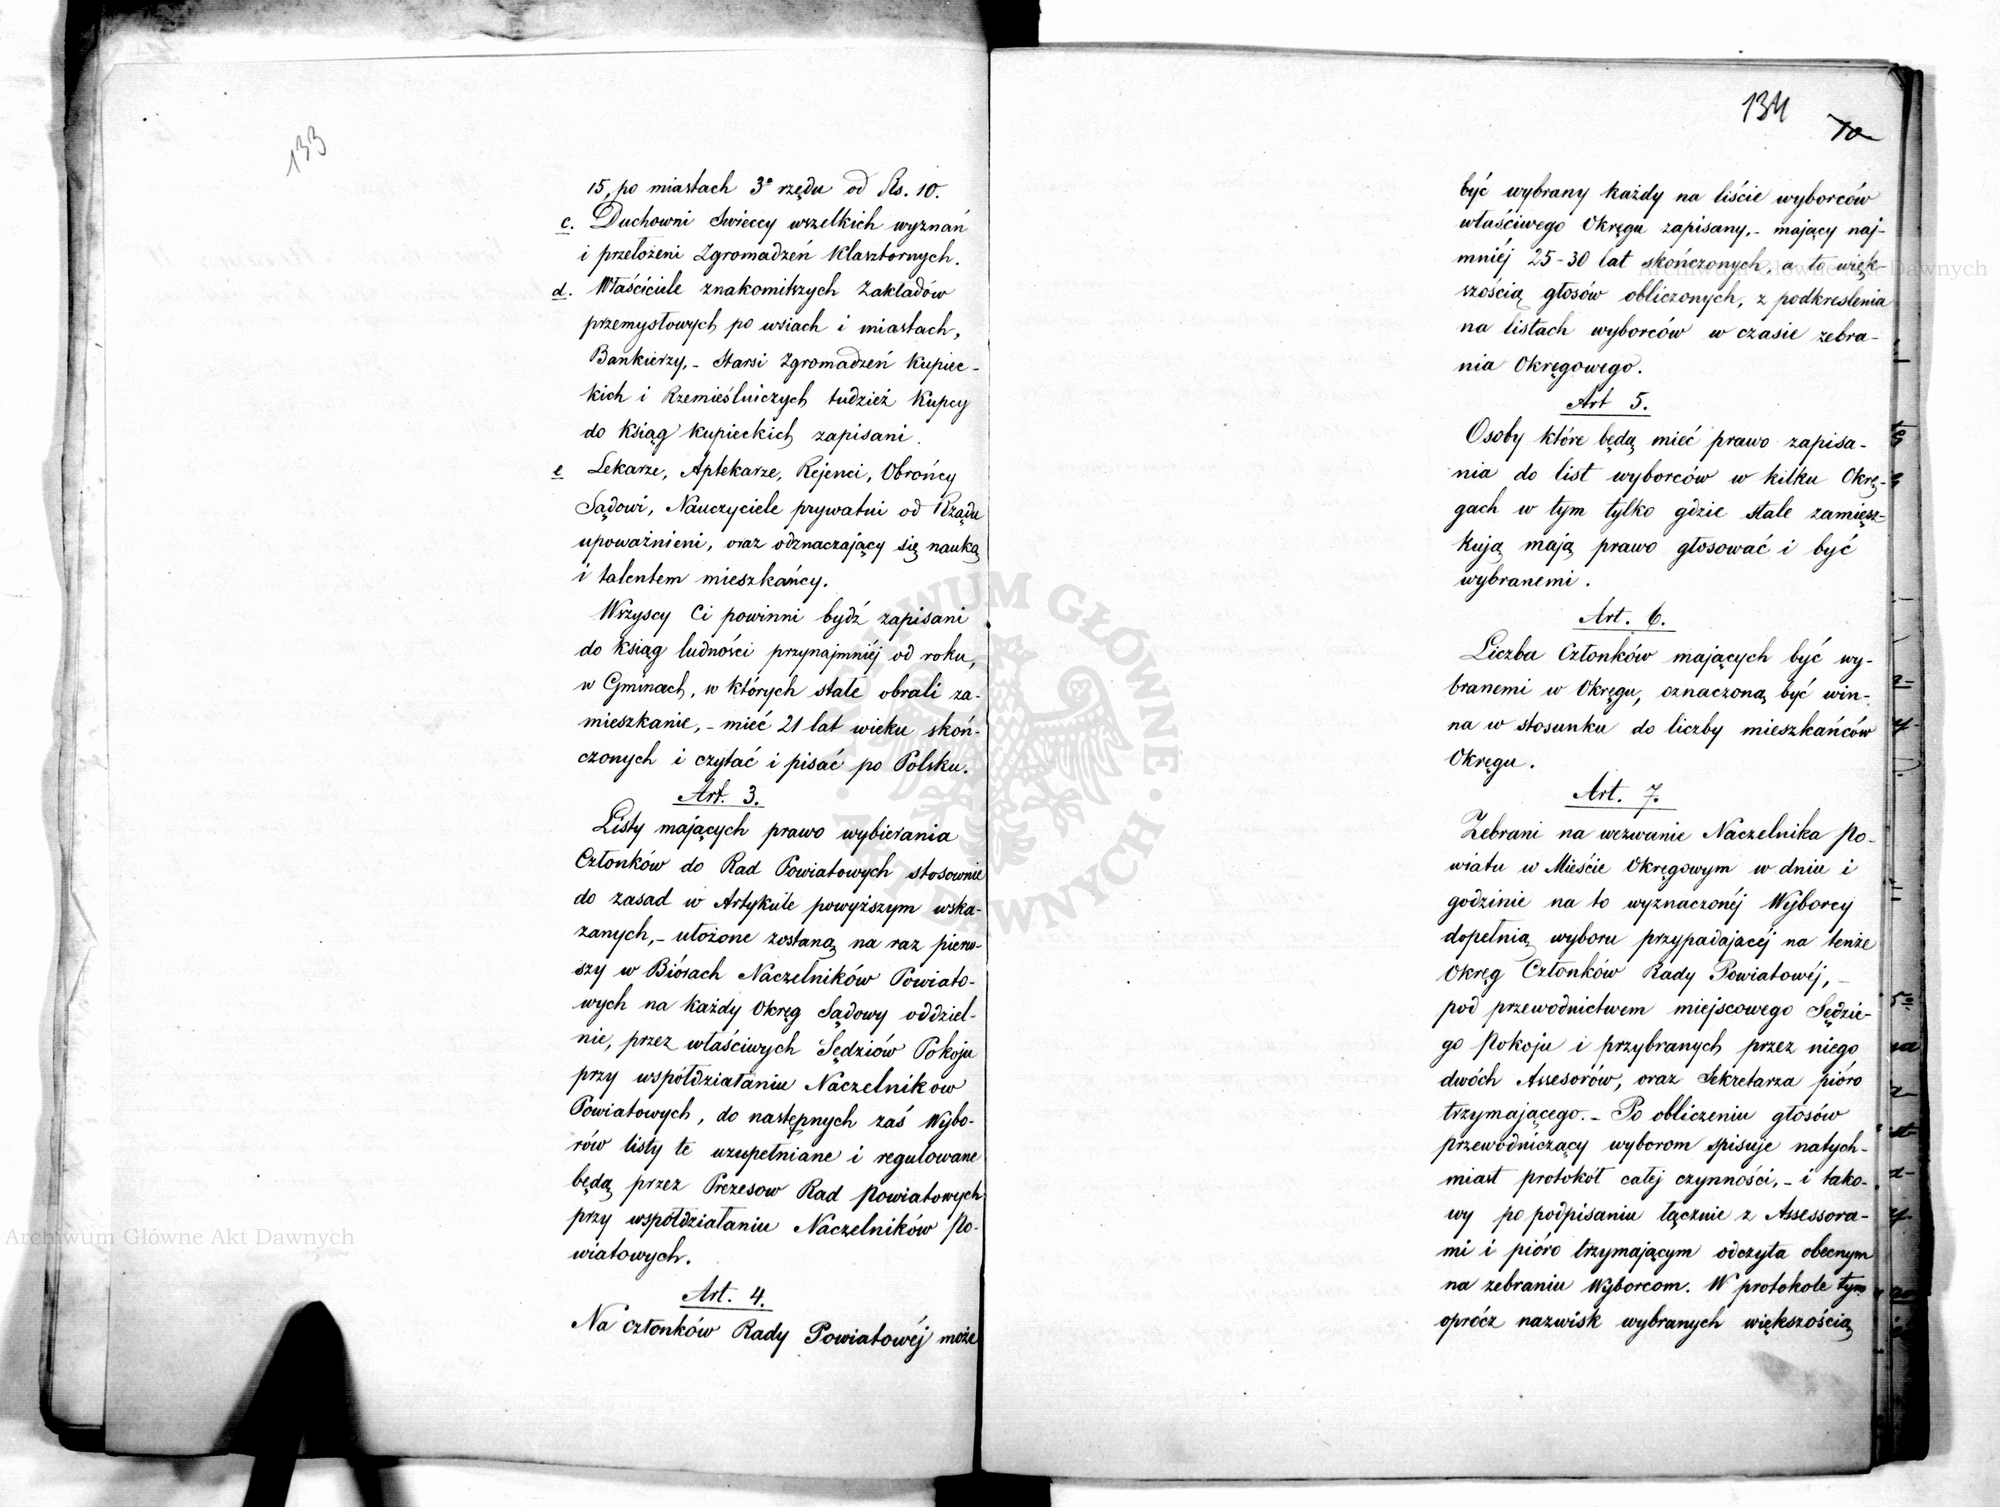 133
15, po miastach 3º rzędu od Rs. 10.
c. Duchowni Swieccy wszelkich wyznań
i przełożeni Zgromadzeń Klasztornych.
d. Właściciele znakomitszych Zakładów
przemysłowych po wsiach i miastach,
Bankierzy, – Starsi Zgromadzeń Kupiec-
kich i Rzemieślniczych tudzież Kupcy
do Ksiąg Kupieckich zapisani.
e Lekarze, Aptekarze, Rejenci, Obrońcy
Sądowi, Nauczyciele prywatni od Rządu
upoważnieni, oraz odznaczający się nauką
i talentem mieszkańcy.
Wszyscy Ci powinni bydź zapisani
do Ksiąg ludności przynajmniéj od roku,
w Gminach, w których stałe obrali za-
mieszkanie, – mieć 21 lat wieku skoń-
czonych i czytać i pisać po Polsku.
Art. 3.
Listy mających prawo wybierania
Członków do Rad Powiatowych stosownie
do zasad w Artykule powyższym wska-
zanych, – ułożone zostaną na raz pierw-
szy w Biórach Naczelników Powiato-
wych na każdy Okręg Sądowy oddziel-
nie, przez właściwych Sędziów Pokoju
przy współdziałaniu Naczelnikow
Powiatowych, do następnych zaś Wybo-
rów listy te uzupełniane i regulowane
będą przez Prezesow Rad Powiatowych
przy współdziałaniu Naczelników Po-
wiatowych.
Art. 4.
Na członków Rady Powiatowéj może
134
10
być wybrany każdy na liście wyborców
właściwego Okręgu zapisany, – mający naj-
mniéj 25-30 lat skończonych, a to więk-
szością głosów obliczonych, z podkreslenia
na listach wyborców w czasie zebra-
nia Okręgowego.
Art 5.
Osoby które będą mieć prawo zapisa-
nia do list wyborców w kilku Okrę-
gach w tym tylko gdzie stale zamięsz-
kują mają prawo głosować i być
wybranemi.
Art. 6.
Liczba Członków mających być wy-
branemi w Okręgu, oznaczoną być win-
na w stosunku do liczby mieszkańców
Okręgu.
Art. 7.
Zebrani na wezwanie Naczelnika Po-
wiatu w Mieście Okręgowym w dniu i
godzinie na to wyznaczonéj Wyborcy
dopełnią wyboru przypadającéj na tenże
Okręg Członków Rady Powiatowéj, –
pod przewodnictwem miejscowego Sędzie-
go Pokoju i przybranych przez niego
dwóch Assesorów, oraz Sekretarza pióro
trzymającego. – Po obliczeniu głosów
przewodniczący wyborom spisuje natych-
miast protokół całej czynności, – i tako-
wy po podpisaniu łącznie z Assessora-
mi i pióro trzymającym odczyta obecnym
na zebraniu Wyborcom. W protokole tym
oprócz nazwisk wybranych większością
Archiwum Główne Akt Dawnych
Archiwum Główne Akt Dawnych